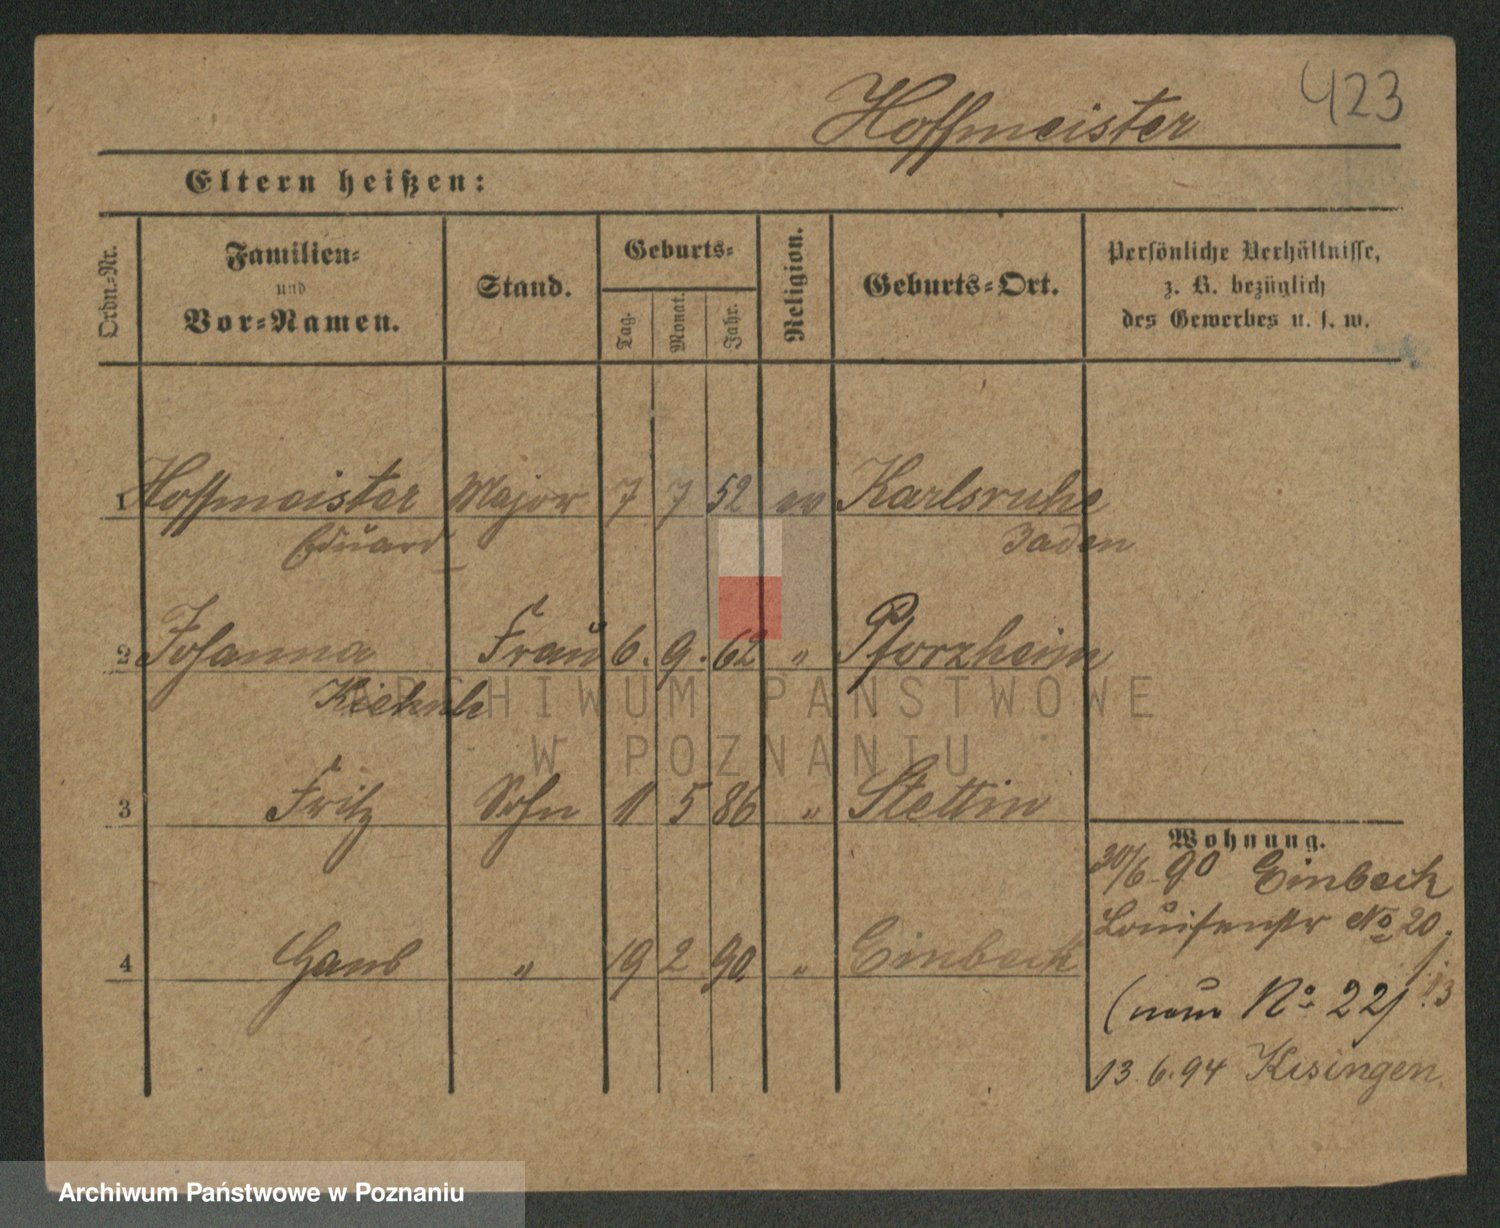 423
Hoffmeister
Eltern heißen:
Ordn.-Nr.
Familien-
und
Vor-Namen.
Stand.
Geburts-
Tag.
Monat.
Jahr.
Religion.
Geburts-Ort.
Persönliche Verhältnisse,
z. B. bezüglich
des Gewerbes u. s. w.
1 Hoffmeister Major 7 7 52 ev Karlsruhe
Eduard Baden
2 Johanna Frau 6. 9. 62 " Pforzheim
Kiehnle
3 Fritz Sohn 11 5 86 " Stettin
4 Hans " 19 2 90 " Einbeck
Wohnung.
30/6 90 Einbeck
Louisenstr No 20
(neue No 22)
13.6.94 Kisingen
ARCHIWUM PAŃSTWOWE
W POZNANIU
Archiwum Państwowe w Poznaniu